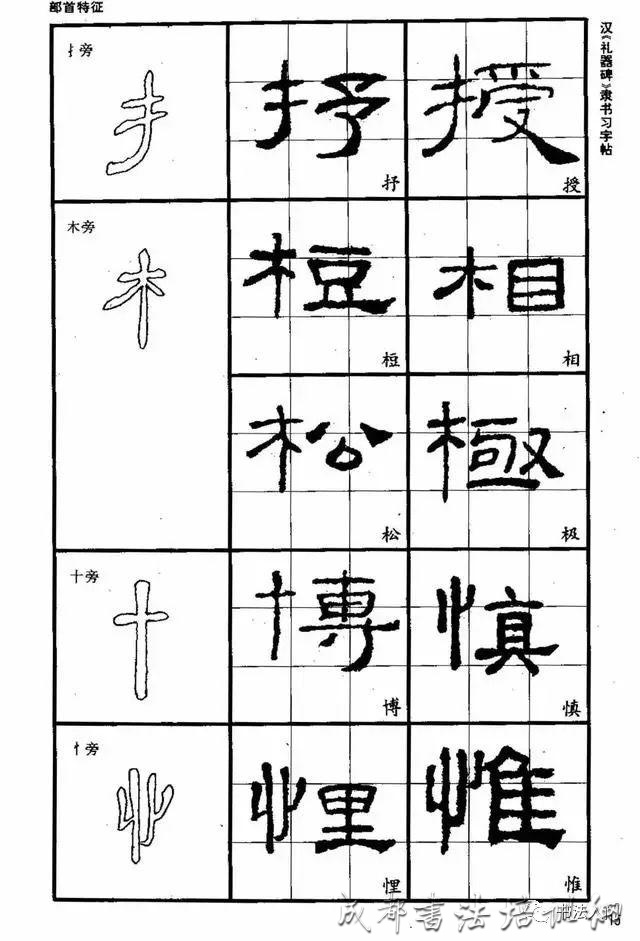 部首特征
汉《礼器碑》隶书习字帖
扌旁
抒 授
抒 授
木旁
桓 相
桓 相
松 極
松 极
十旁
博 慎
博 慎
忄旁
悝 惟
悝 惟
成都书法培训
书法